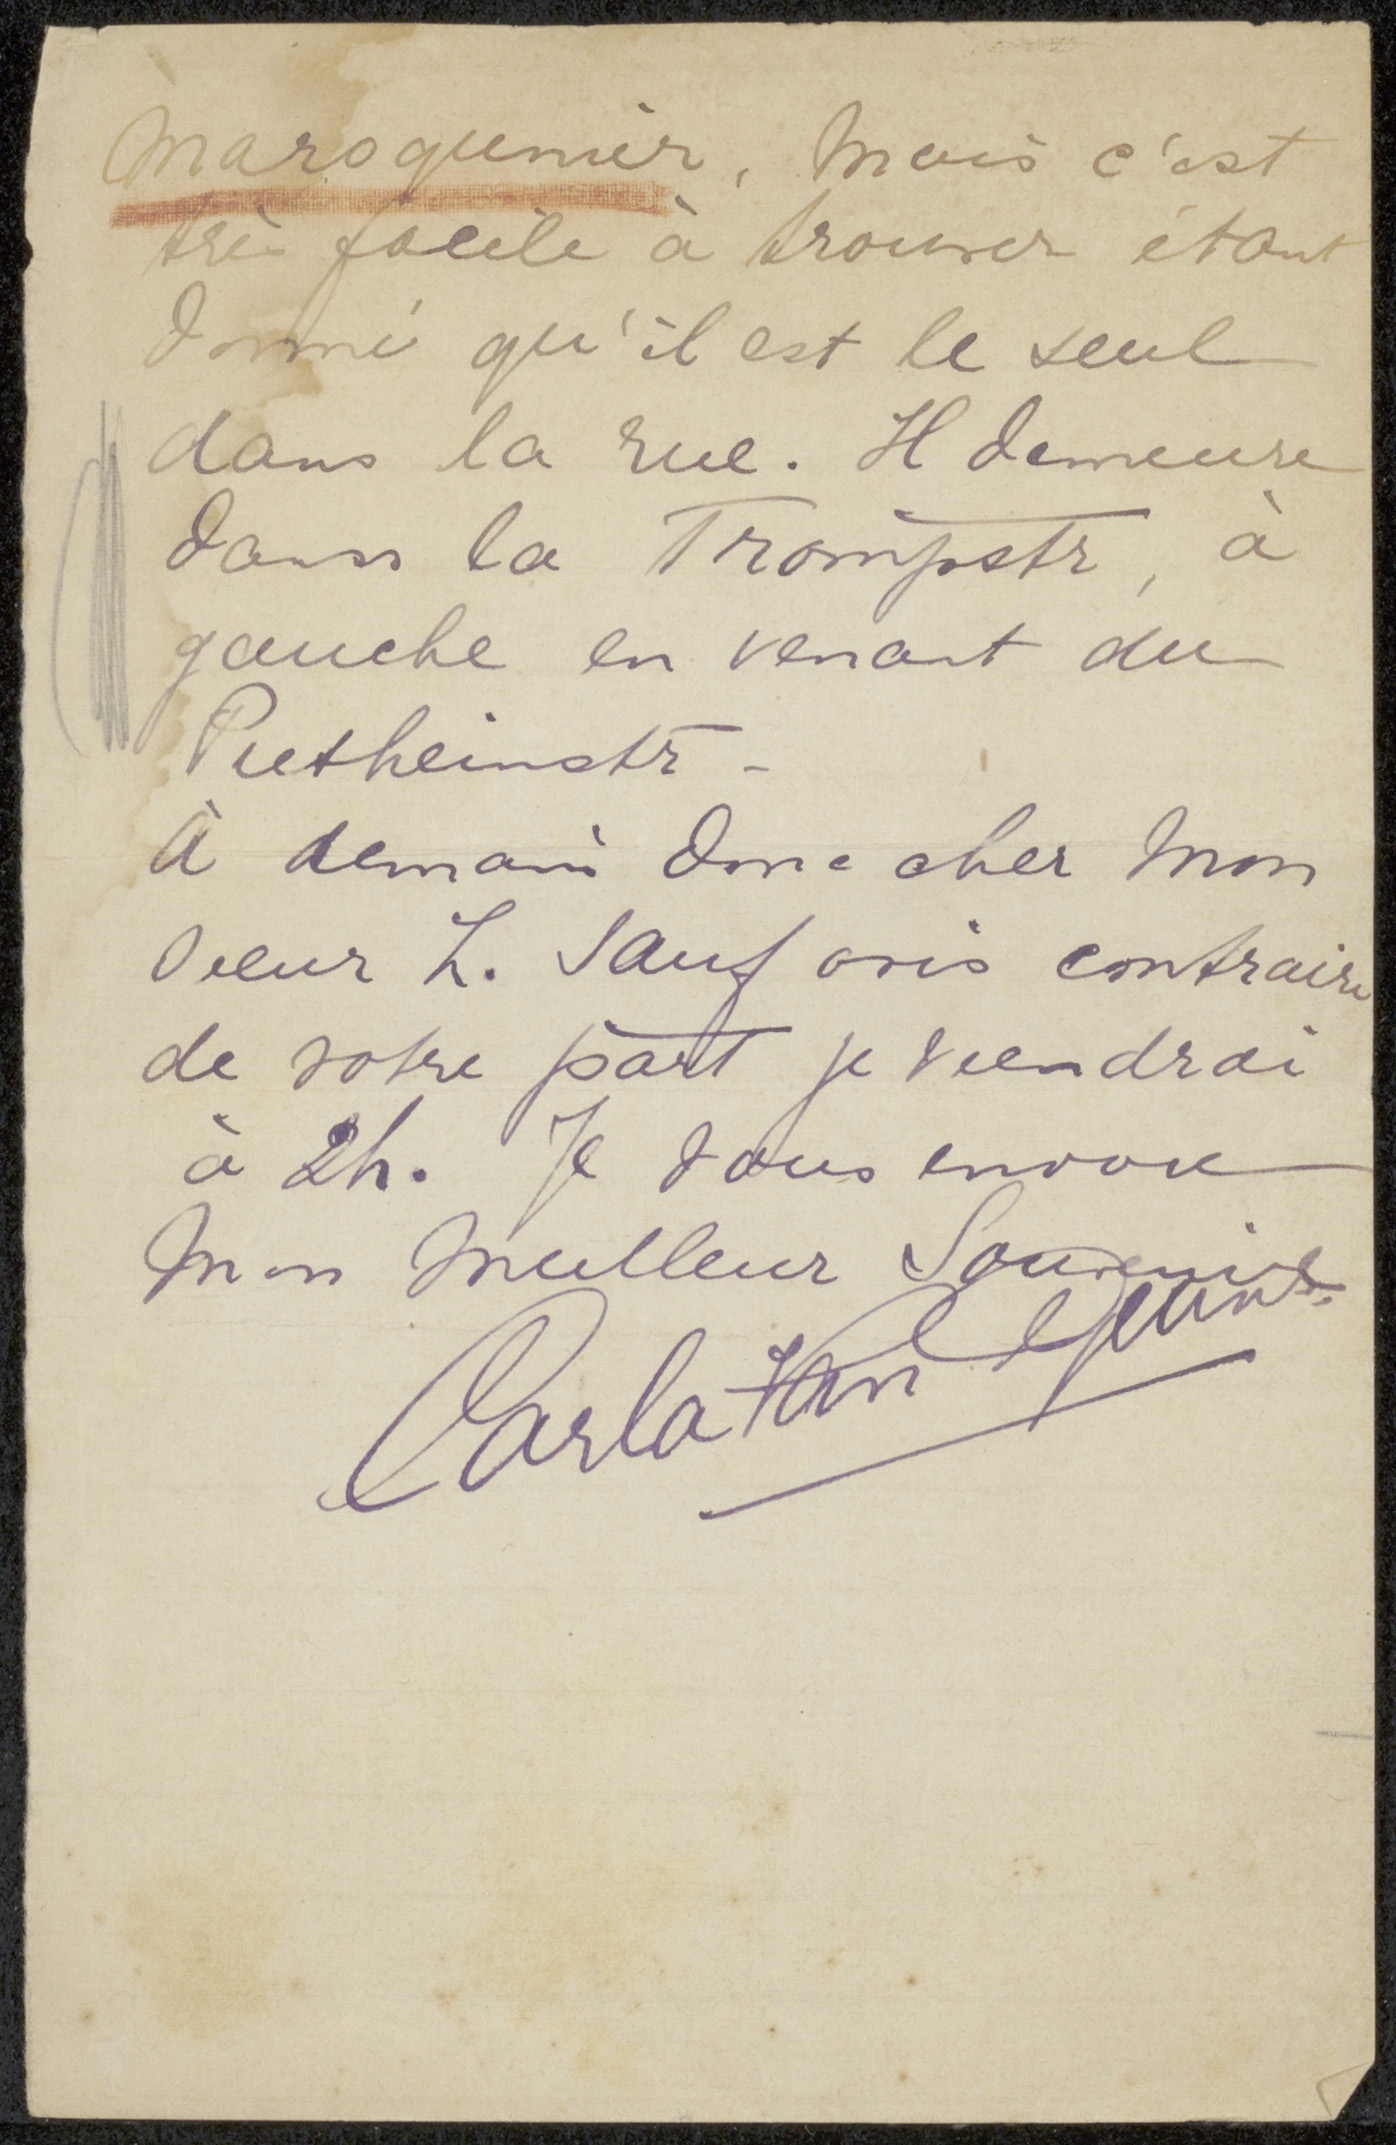 Maroquinier, Mais c'est
très facile à trouver étant
donné qu'il est le seul
dans la rue. Il demeure
dans la Trompstr, à
gauche en venant du
Pietheinstr -
À demain donc cher Mon
sieur Z. Sauf avis contraire
de votre part je viendrai
à 2h. Je vous envoie
Mon Meilleur Souvenir.
Carla Van